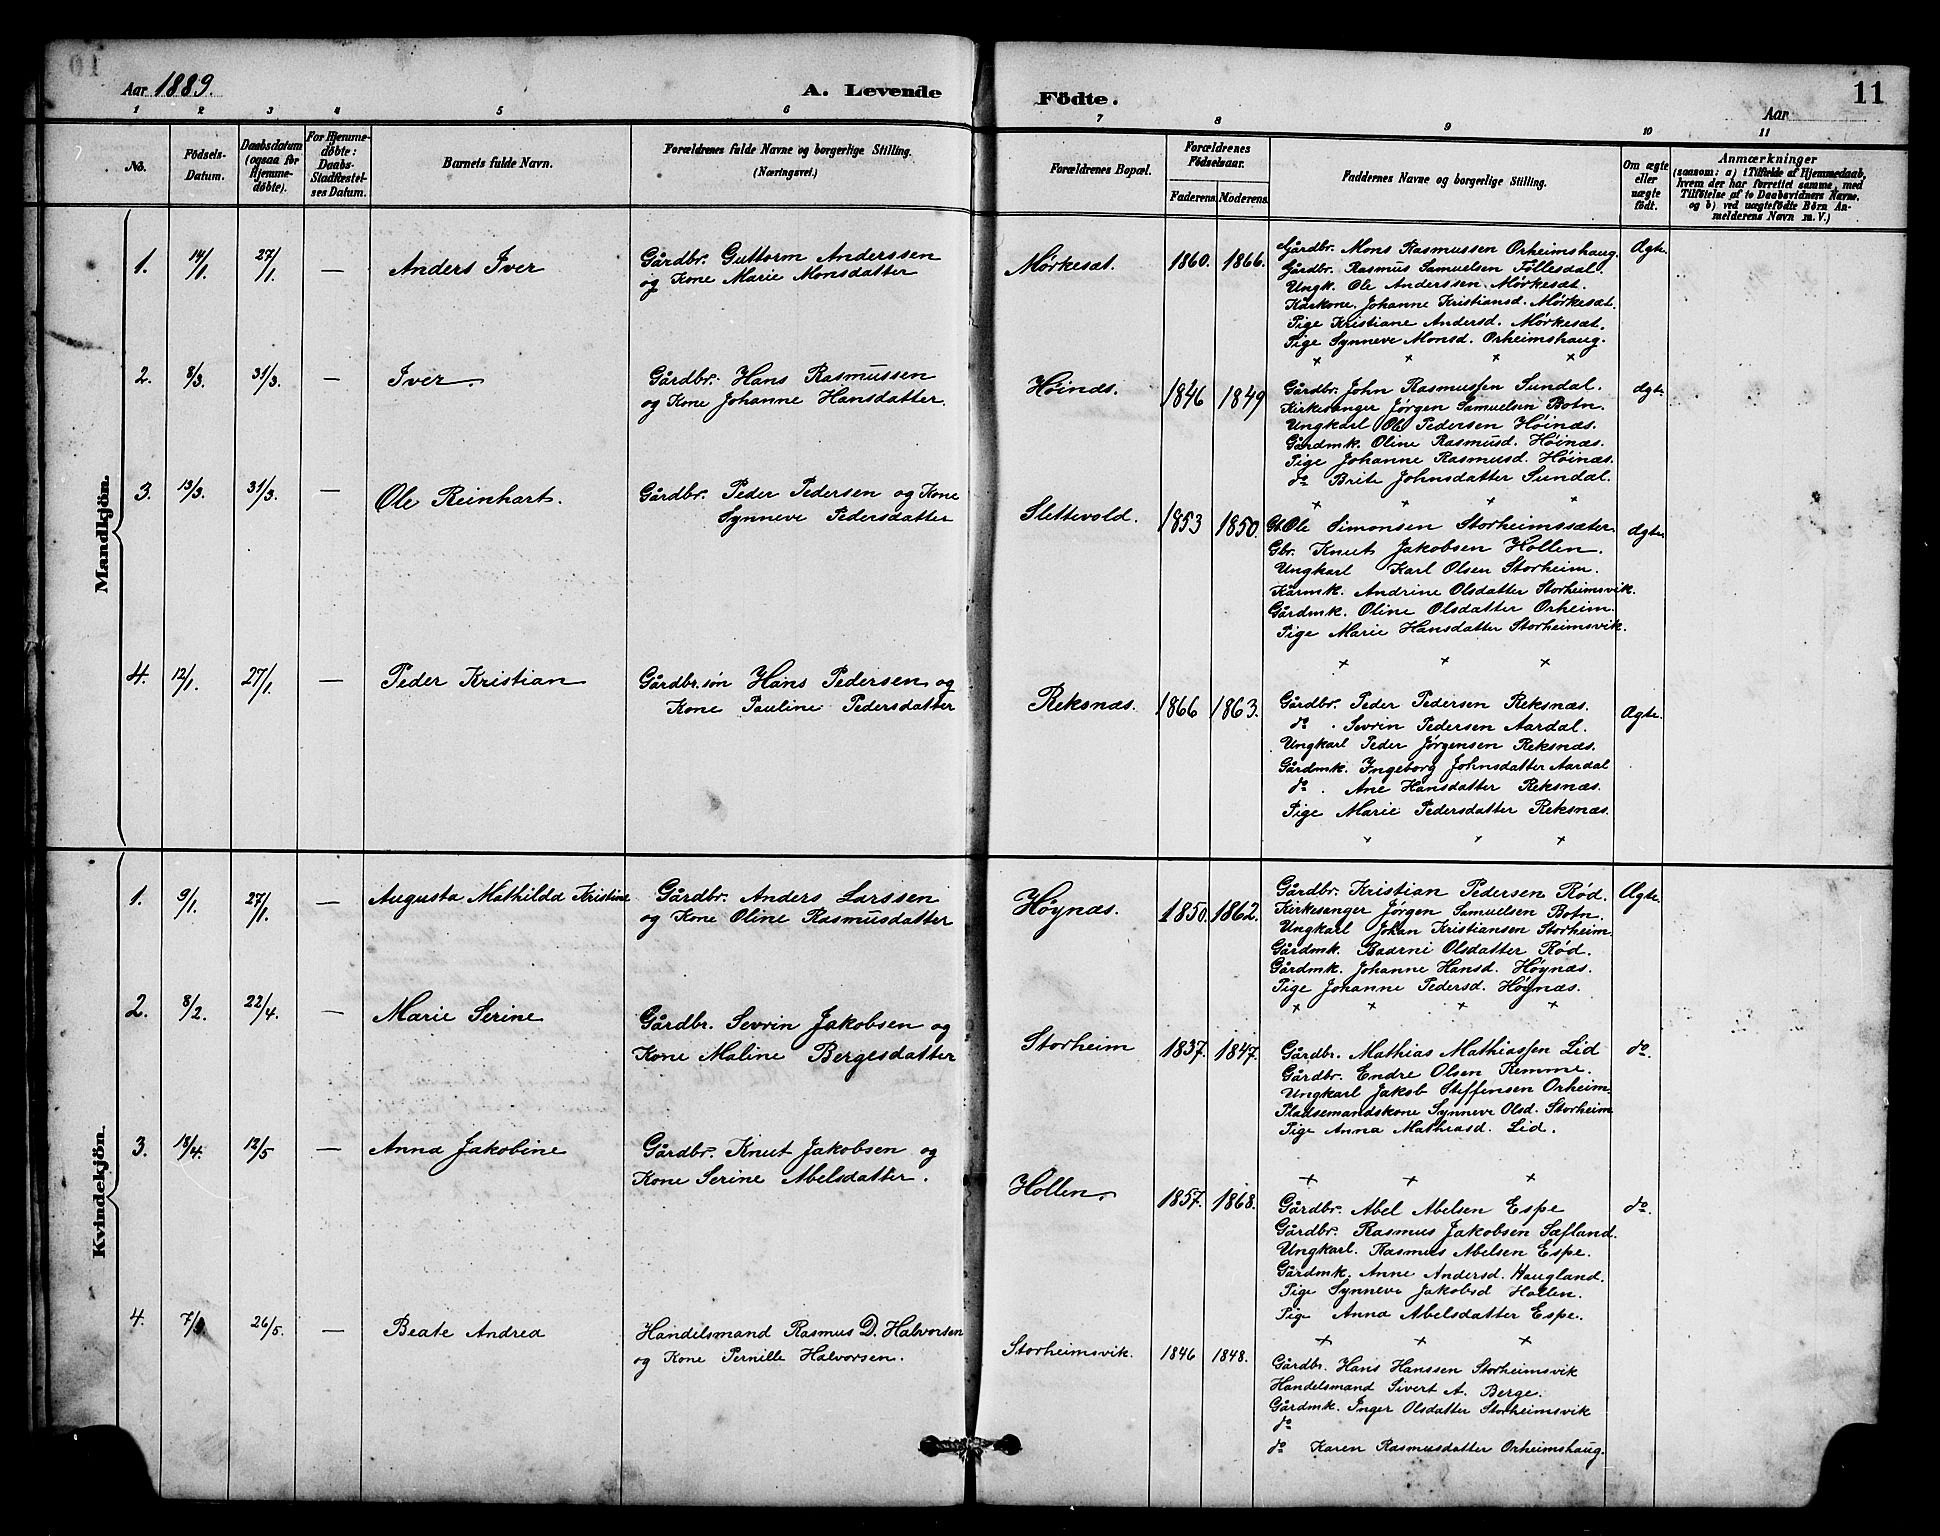 10
Aar 1889.
A. Levende Födte.
Aar
11
1 2 3 4 5 6 7 8 9 10 11
No.
Födsels-Datum.
Daabsdatum (ogsaa for Hjemme-döbte).
For Hjemme-döbte: Daabs-Stadfæstel-ses Datum.
Barnets fulde Navn.
Forældrenes fulde Navne og borgerlige Stilling. (Næringsvei.)
Forældrenes Bopæl.
Forældrenes Födselsaar.
Faderens. Moderens.
Faddernes Navne og borgerlige Stilling.
Om ægte eller uægte födt.
Anmærkninger
(saasom: a) i Tilfælde af Hjemmedaab,
hvem der har forrettet samme, med
Tilföielse af to Daabsvidners Navne.
og b) ved uægtefödte Börn An-
melderens Navn m. V.)
Mandkjön.
1. 14/1. 27/1. — Anders Iver
Gårdbr. Guttorm Anderssen
og Kone Marie Monsdatter
Mørkesæt. 1860. 1866.
Gårdbr. Mons Rasmussen Orheimshaug.
Gårdbr. Rasmus Samuelsen Föllesdal.
Ungk. Ole Anderssen Mørkesæt.
Kårkone. Johanne Kristiansd. Mørkesæt.
Pige Kristiane Andersd. Mørkesæt.
Pige Synneve Monsd. Orheimshaug.
Ægte.
2. 8/3. 31/3. — Iver.
Gårdbr. Hans Rasmussen
og Kone Johanne Hansdatter.
Höinæs. 1846 1849
Gårdbr. John Rasmussen Sundal.
Kirkesanger Jörgen Samuelsen Botn.
Ungkarl Ole Pedersen Höinæs.
Gårdmk. Oline Rasmusd. Höinæs.
Pige Johanne Rasmusd. Höinæs.
do Brite Johnsdatter Sundal.
Ægte.
3. 13/3. 31/3. — Ole Reinhart.
Gårdbr. Peder Pedersen og Kone
Synneve Pedersdatter
Slettevold. 1853 1850.
Gb. Ole Simonsen Storheimssæter.
Gbr. Knut Jakobsen Hollen.
Ungkarl Karl Olsen Storheim.
Kårmk. Andrine Olsdatter Storheimsvik.
Gårdmk. Oline Olsdatter Orheim.
Pige Marie Hansdatter Storheimsvik.
Ægte.
4. 12/1. 27/1. — Peder Kristian
Gårdbr.søn Hans Pedersen og
Kone Pauline Pedersdatter
Reksnæs. 1866 1863.
Gårdbr. Peder Pedersen Reksnæs.
do. Sevrin Pedersen Aardal.
Ungkarl Peder Jørgensen Reksnæs.
Gårdmk. Ingeborg Johnsdatter Aardal
do. Ane Hansdatter Reksnæs.
Pige Marie Pedersdatter Reksnæs.
Ægte.
Kvindekjön.
1. 9/1. 27/1. — Augusta Mathilda Kristine
Gårdbr. Anders Larssen
og Kone Oline Rasmusdatter
Høynæs. 1850. 1862.
Gårdbr. Kristian Pedersen Rød.
Kirkesanger Jørgen Samuelsen Botn.
Ungkarl Johan Kristiansen Storheim.
Gårdmk. Baarni Olsdatter Rød.
Gårdmk. Johanne Hansd. Høynæs.
Pige Johanne Pedersd. Høynæs.
Ægte.
2. 8/2. 22/4. — Marie Serine
Gårdbr. Sevrin Jakobsen og
Kone Maline Bergesdatter
Storheim 1837. 1847.
Gårdbr. Mathias Mathiassen Lid
Gårdbr. Endre Olsen Remme.
Ungkarl Jakob Steffensen Orheim.
Pladsemandskone Synneve Olsd. Storheim
Pige Anna Mathiasd. Lid.
do.
3. 13/4. 12/5 — Anna Jakobine
Gårdbr. Knut Jakobsen og
Kone Serine Abelsdatter.
Hollen. 1857. 1868.
Gårdbr. Abel Abelsen Espe
Gårdbr. Rasmus Jakobsen Sæfland.
Ungkarl. Rasmus Abelsen Espe.
Gårdmk. Anne Andersd. Haugland.
Pige Synneve Jakobsd Hollen.
Pige Anna Abelsdatter Espe.
do.
4. 26/5. — Beate Andrea
Handelsmand Rasmus D. Halvorsen
og Kone Pernille Halvorsen.
Storheimsvik. 1846 1848.
Gårdbr. Hans Hanssen Storheimsvik
Handelsmand Sivert A. Berge.
Gårdmk. Inger Olsdatter Storheimsvik
do
do Karen Rasmusdatter Orheimshaug.